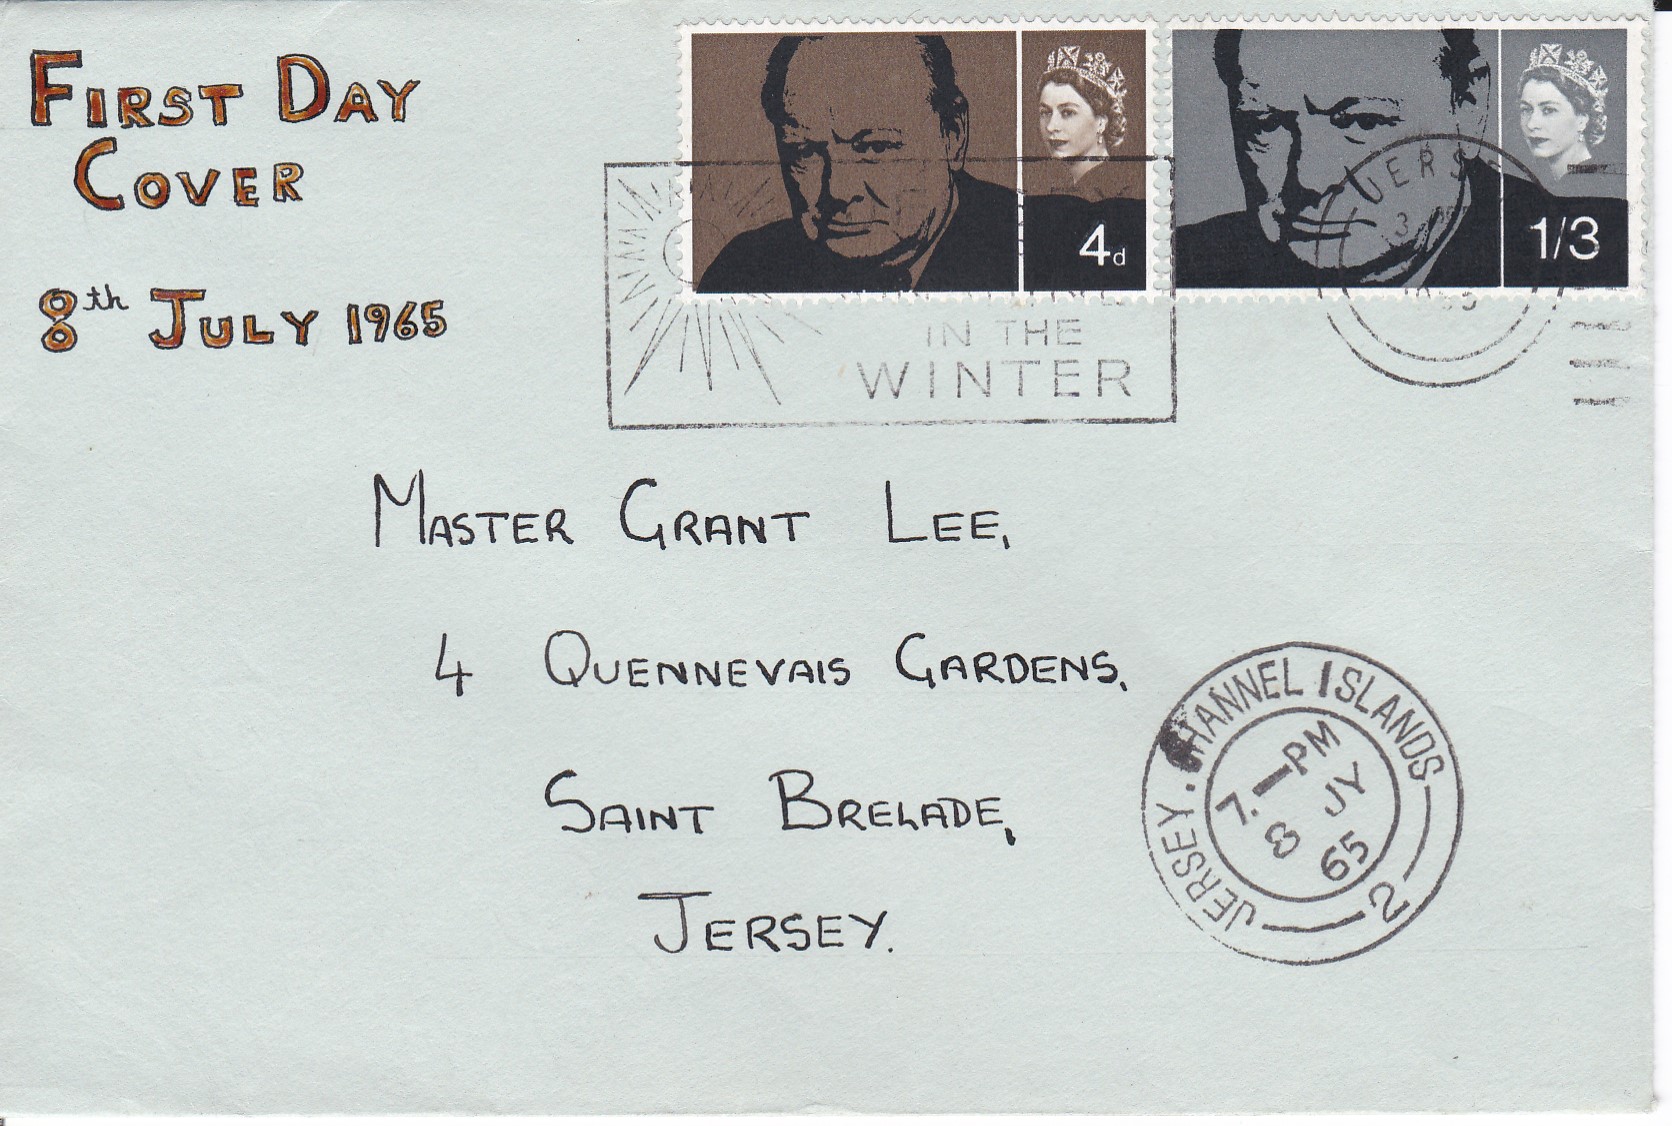 FIRST DAY
COVER
8th JULY 1965
4d
1/3
JERS
IN THE
WINTER
MASTER GRANT LEE,
4 QUENNEVAIS GARDENS,
SAINT BRELADE,
JERSEY.
JERSEY. CHANNEL ISLANDS
2
7. - PM
8 JY
65